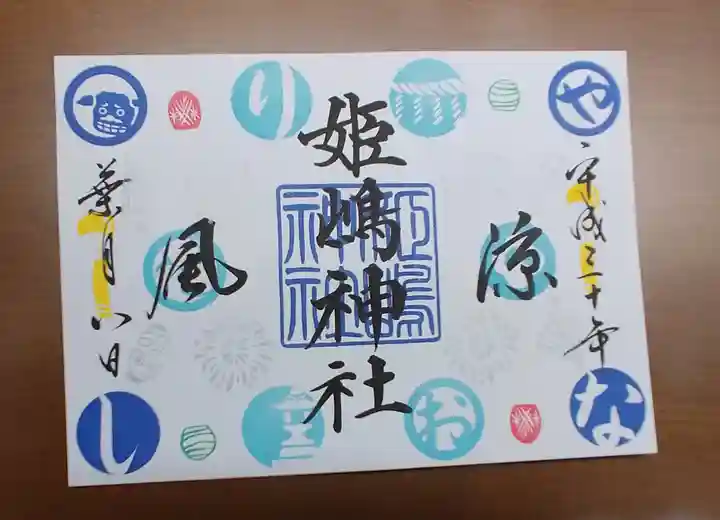 平成三十年
涼
姫嶋神社
姫嶋神社
風
葉月八日
や
の
り
お
な
し